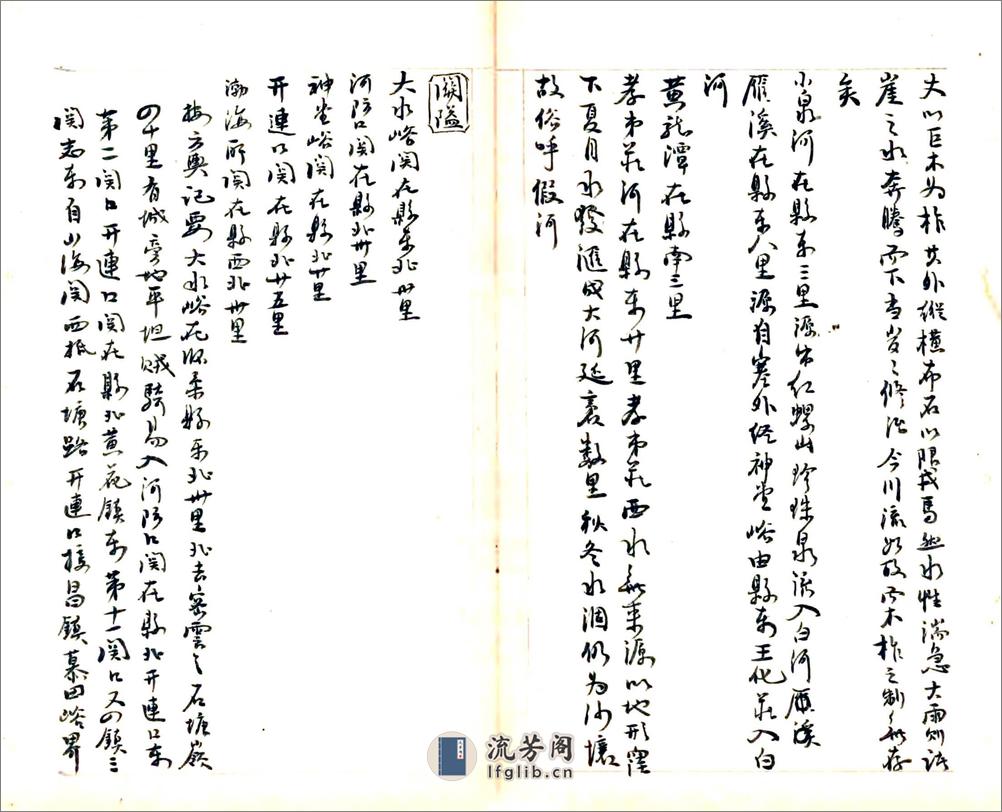 丈以巨木为柞其外縱橫布石以限戎馬然水性湍急大雨則諸
崖之水奔騰而下当岁之修治今川流如故而木柞之制無存
矣
小泉河在縣东三里源出红螺山珍珠泉流入白河雁溪
雁溪在縣东八里源自塞外经神堂峪由縣东王化莊入白
河
黄龍潭在縣南三里
孝弟莊河在縣东廿里孝弟莊西水無来源以地形窪
下夏月水發滙成大河延袤数里秋冬水涸仍为沙壤
故俗呼假河
関隘
大水峪関在縣东北卅里
河防口関在縣北卅里
神堂峪関在縣北廿里
开連口関在縣北廿五里
渤海所関在縣西北卅里
按方輿记要大水峪在怀柔縣东北卅里北去密雲之石塘嶺
四十里有城旁地平坦贼騎易入河防口関在縣北开連口东
第二関口开連口関在縣北黄花鎮东第十一関口又四鎮三
関志东自山海関西抵石塘路开連口接昌鎮慕田峪界
流芳阁
lfglib.cn